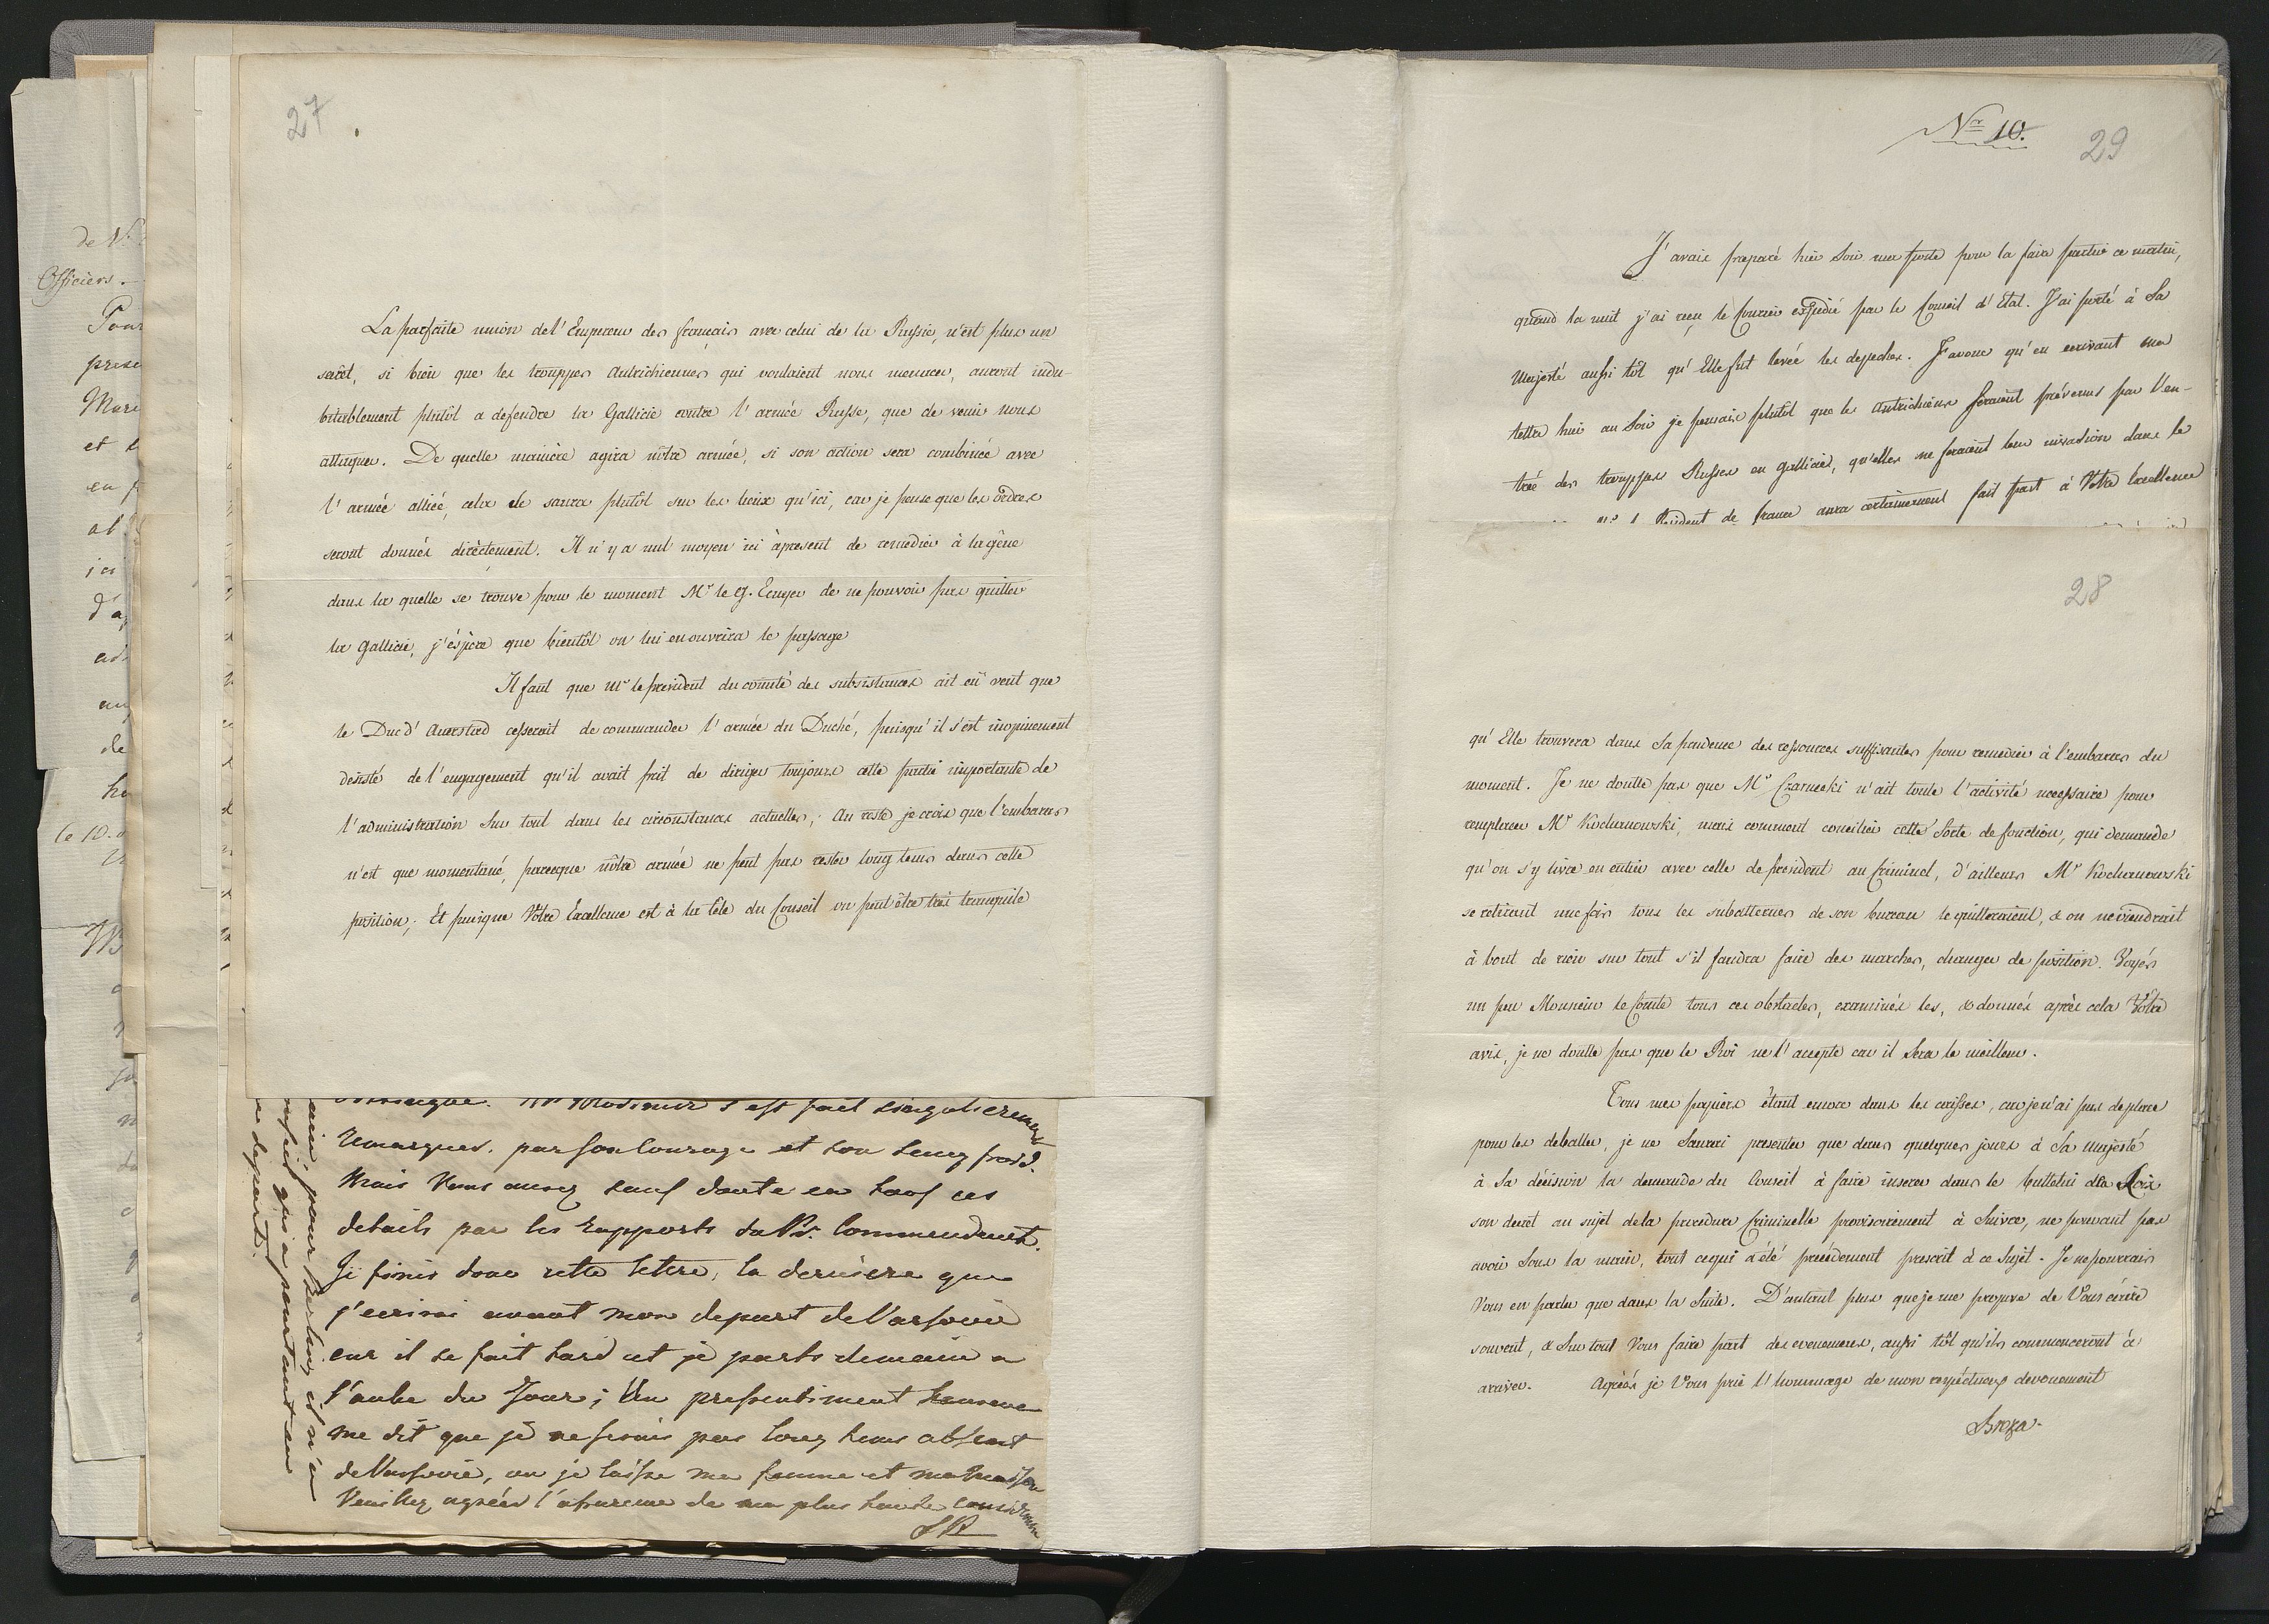 27
La parfaite union de l'Empereur des français avec celui de la Russie, n'est plus un
secrèt, si bien que les trouppes Autrichiennes qui voulaient nous menacer, auront indu-
bitablement plutôt a defendre la Gallicie contre l'armée Russe, que de venir nous
attaquer. De quelle manière agira nôtre armée, si son action sera combinée avec
l'armée alliée, cela se saura plutôt sur les lieux qu'ici, car je pense que les ordres
seront donnés dirèctement. Il n'y a nul moyen ici àpresent de remedier à la gêne
dans la quelle se trouve pour le moment Mr le G. Ecuyer de ne pouvoir pas quitter
la Gallicie, j'éspère que bientôt on lui en ouvrira le passage
Il faut que Mr le president du comité des subsistances ait eû vent que
le Duc d'Auerstæd cesserait de commander l'armée du Duché, puisqu'il s'est inopinement
desisté de l'engagement qu'il avait fait de diriger toujours cette partie importante de
l'administration Sur tout dans les circonstances actuelles; Au reste je crois que l'embaras
n'est que momentané, parceque nôtre armée ne peut pas rester long tems dans cette
position; Et puisque Vôtre Excellence est à la tête du Conseil on peut être très tranquile
s'est fait singulierement
remarquer. par son Courage et son Seng froid.
Mais Vous aurez sauf doute en tous ces
details par les rapports du Pr. Commendant.
Je finis donc cette lettre, la derniere que
j'ecrirai avant mon depart de Varsovie
car il se fait tard et je parts demain a
l'aube du Jour; Un pressentiment heureux
me dit que je ne serais pas long tems absent
de Varsovie, ou je laisse ma femme et ma maison
Veuillez agréer l'assurence de ma plus haute consideration
SP
pour Berlin, il n'a
qui a pourtant eu
depart.
de V
Officiers.
Pour
prese
et
en
d'a
de
le 10.
Nr 10.
29
J'avais preparé hier Soir ma poste pour la faire partir ce matin,
quand la nuit j'ai reçu le Courier expedié par le Conseil d'Etat. J'ai porté à Sa
Majesté aussi tôt qu'Elle fut levée les depeches. J'avoue qu'en ecrivant ma
lettre hier au Soir je pensais plutôt que les Autrichiens seraient prévenus par l'en-
trée des trouppes Russes en Gallicie, qu'elles ne feraient leur invasion dans le
Resident de france aura certainement fait part à Votre Excellence
28
qu'Elle trouvera dans Sa prudence des ressources suffisantes pour remedier à l'embaras du
moment. Je ne doutte pas que Mr Czarnecki n'ait toute l'activité necessaire pour
remplacer Mr Kochanowski, mais comment concilier cette Sorte de fonction, qui demande
qu'on s'y livre en entier avec celle de president au Criminel, d'ailleurs Mr Kochanowski
se retirant une fois tous les subalternes de son bureau le quitteraient, & on ne viendrait
à bout de rien sur tout s'il faudra faire des marches, changer de position. Voyés
un peu Monsieur le Comte tous ces obstacles, examinés les, & donnés après cela Vôtre
avis, je ne doutte pas que le Roi ne l'accepte car il Sera le meilleur.
Tous mes papiers étant encore dans les caisses, car je n'ai pas de place
pour les deballer, je ne Saurai presenter que dans quelques jours à Sa Majesté
à Sa décision la demande du Conseil à faire inserer dans le bulletin des Loix
son decret au sujet de la procedure Criminelle provisoirement à Suivre, ne pouvant pas
avoir Sous la main, tout ce qui a été précédement prescrit à ce Sujet. Je ne pourrais
Vous en parler que dans la Suite. D'autant plus que je me propose de Vous écrire
souvent, & Sur tout Vous faire part des evenemens, aussi tôt qu'ils commenceront à
arriver. Agréés je Vous prie l'hommage de mon respéctueux devouement
Breza